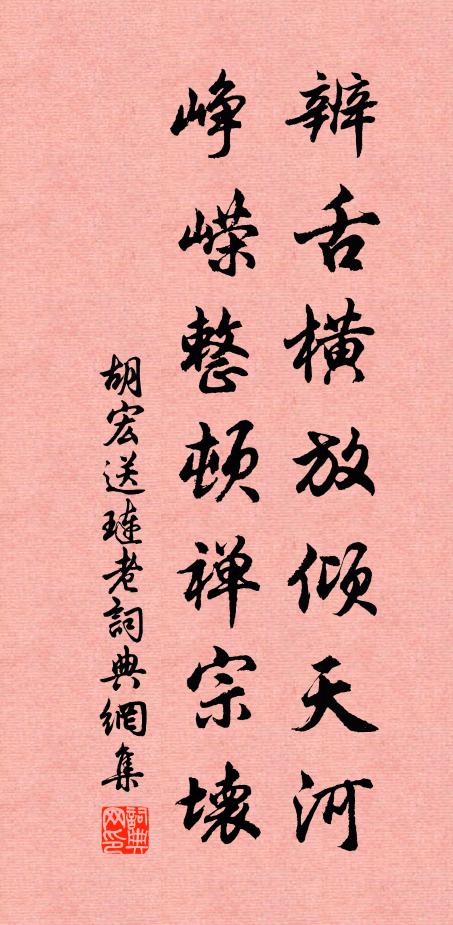 辨舌横放倾天河
峥嵘整顿禅宗壊
胡宏送琏老詞典網集
詞典网印